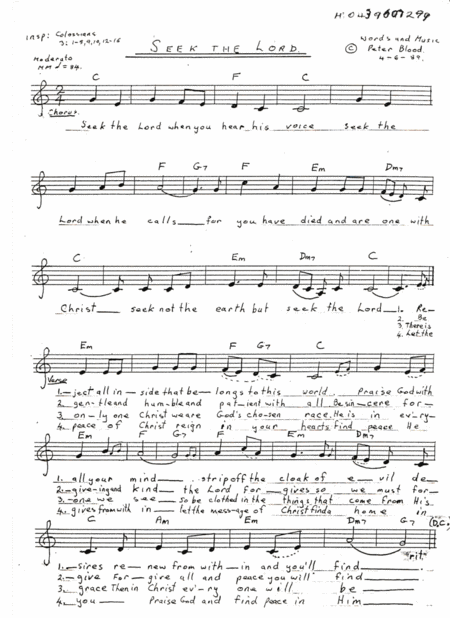 M: 0439607299
insp: Colossians
3: 1-8,9,10,12-16
SEEK THE LORD.
Words and Music
© Peter Blood.
4-6-89.
Moderato
MM ♩=84.
C F C
2/4
Chorus.
Seek the Lord when you hear his voice Seek the
F G7 F Em Dm7
Lord when he calls for you have died and are one with
C Em Dm7 C
Christ seek not the earth but seek the Lord 1. Re-
2. Be
3. There is
4. Let the
Em F G7 C
Verse
1. -ject all in-side that be-longs to this world. Praise God with
2. gen-tle and hum-ble and pat-ient with all Be sin-cere for-
3 on-ly one Christ we are God's cho-sen race. He is in ev'-ry-
4. peace of Christ reign in your hearts. Find peace He
Em F G7 F Em Dm7
1. all your mind strip off the cloak of e-vil de-
2. -give-ing and kind the Lord for-gives so we must for-
3. -one we see So be clothed in the things that come from His
4. gives from with in let the message of Christ find a home in
C Am Em Dm7 G7 C (D.C.)
rit.
1. -sires re-new from with-in and you'll find
2. -give For-give all and peace you will find
3. grace Then in Christ ev'-ry one will be
4. you Praise God and find peace in Him